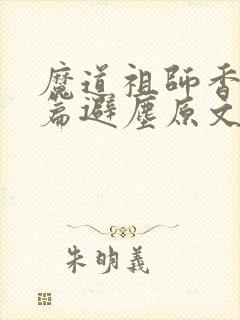 魔道祖師香
篇避塵原文
朱明義